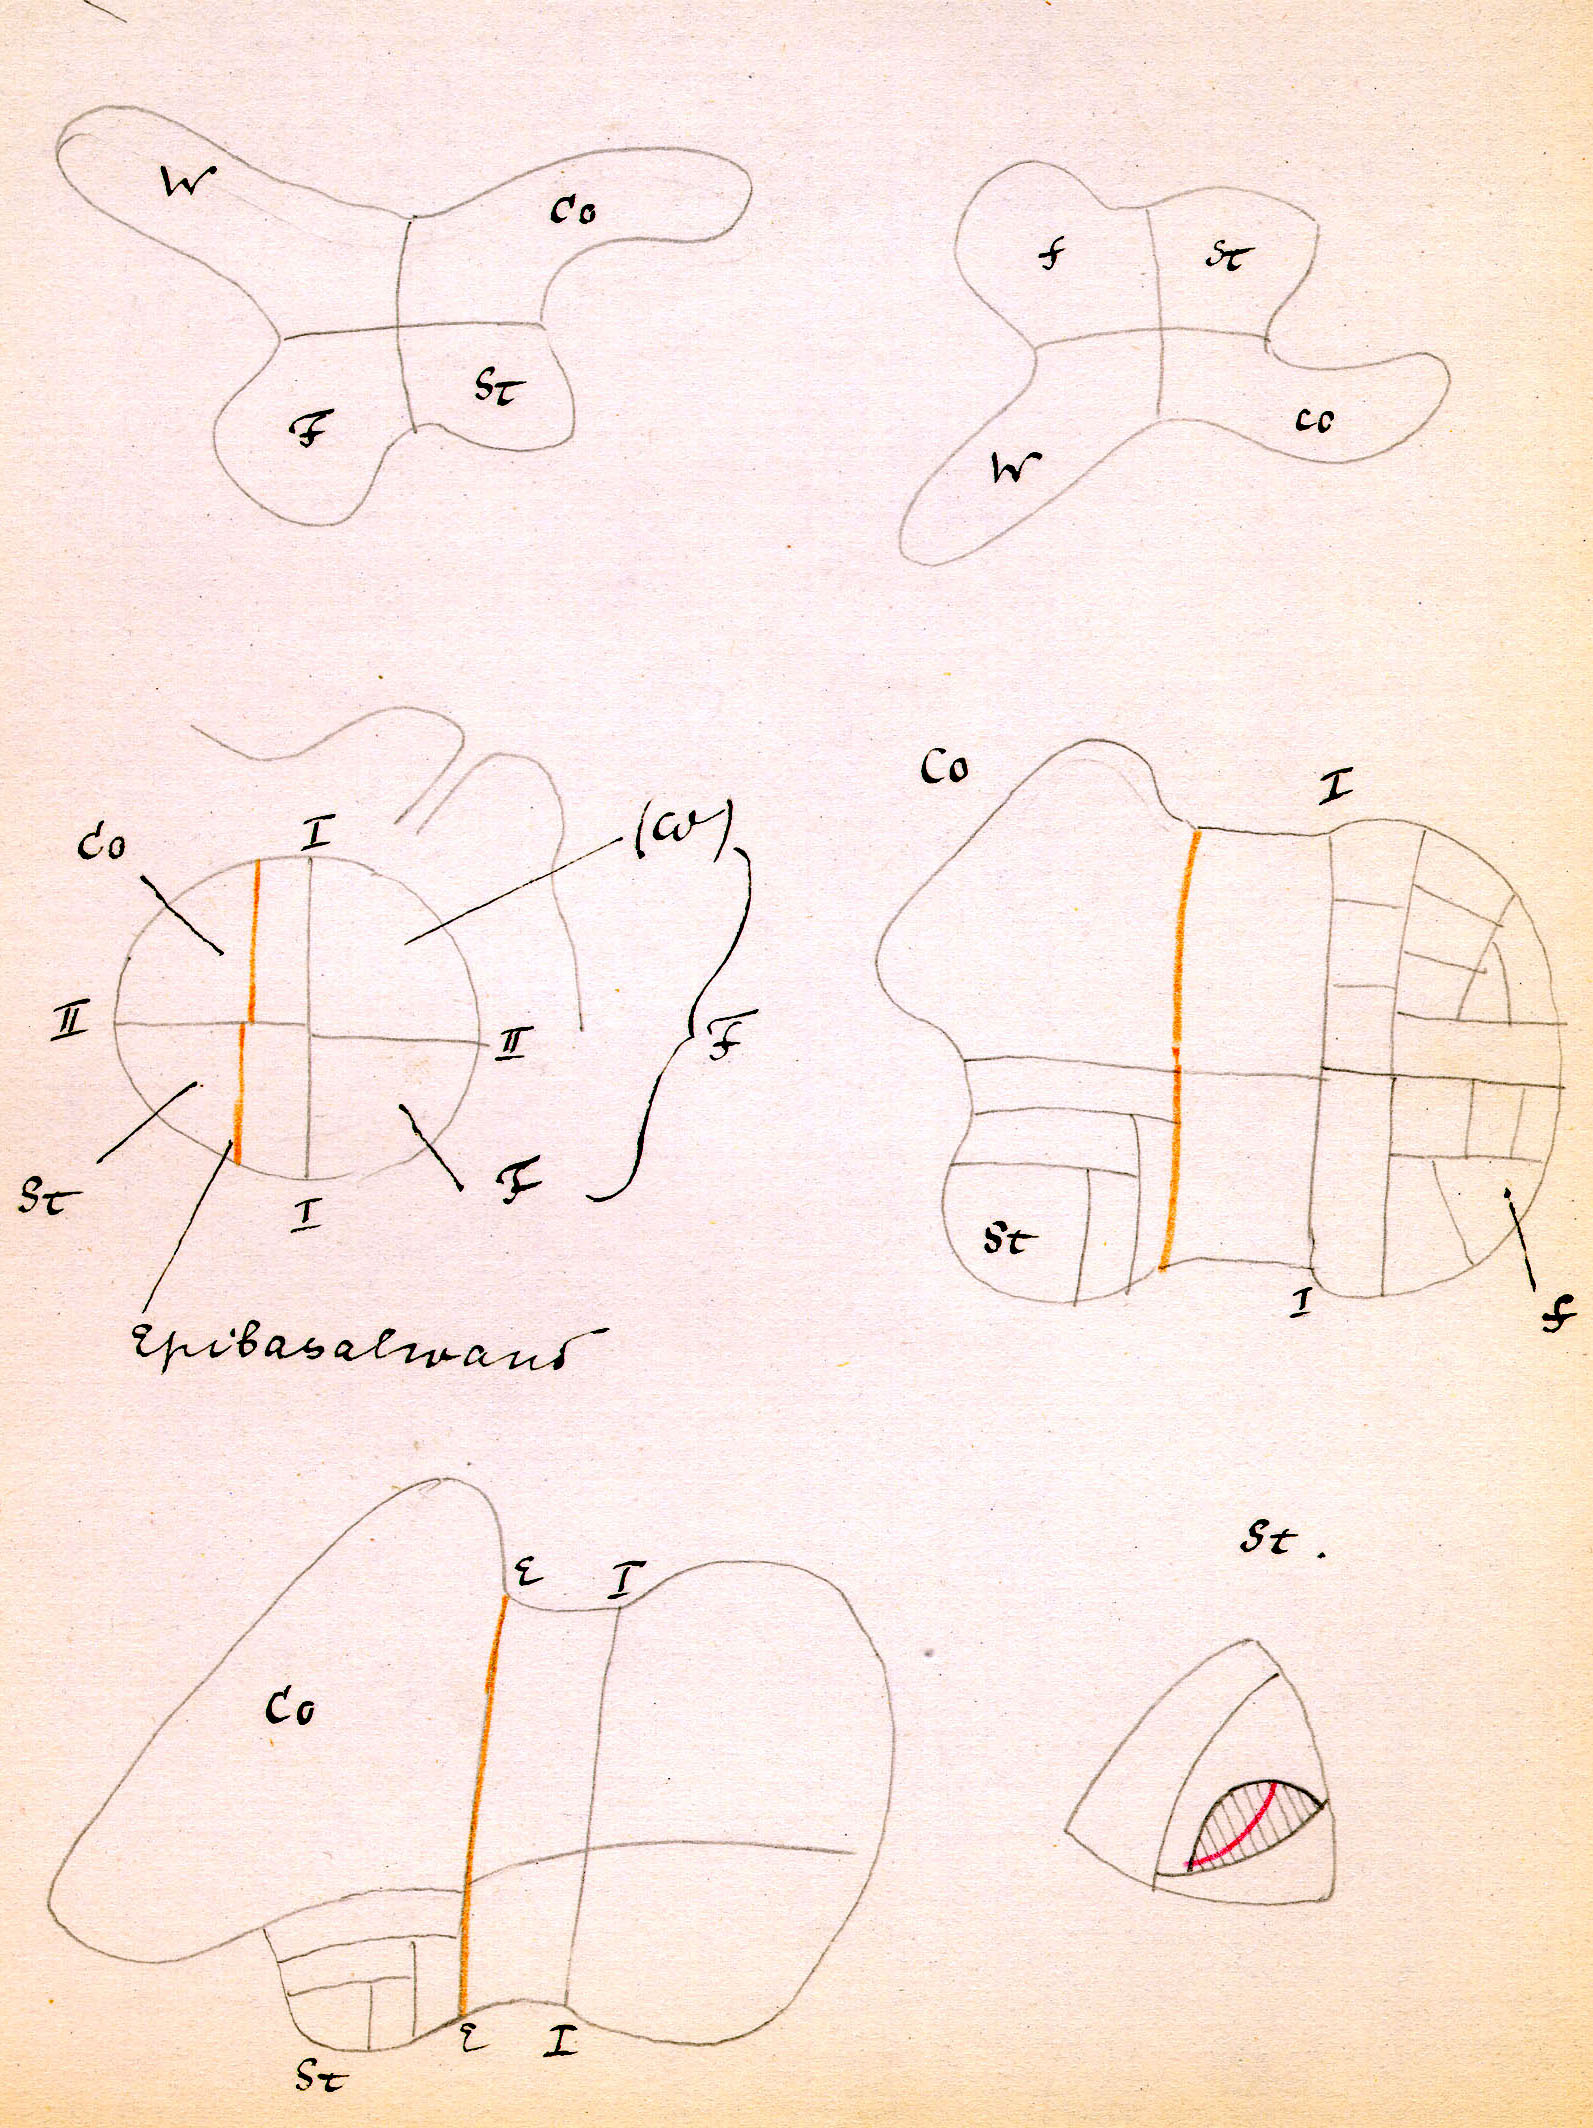 W
Co
F
St
f
St
W
Co
Co
I
(Co)
II
II
F
St
F
I
Epibasalwand
Co
I
St
I
f
E
I
Co
E
I
St
St.